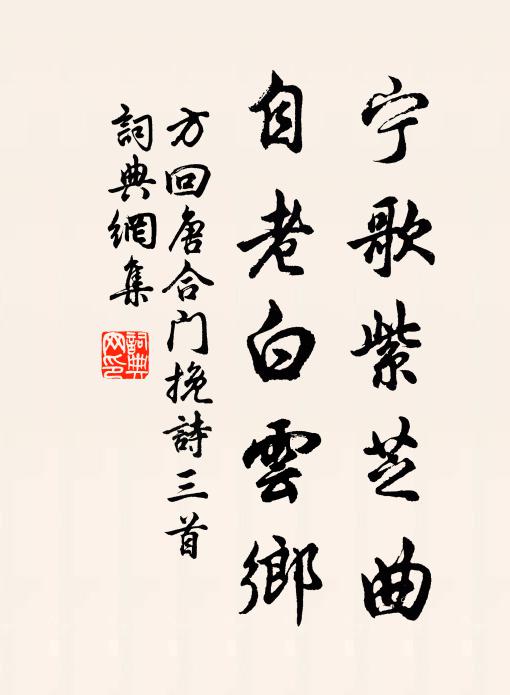 宁歌紫芝曲
自老白雲鄉
方回唐合门挽詩三首
詞典網集
詞典網印